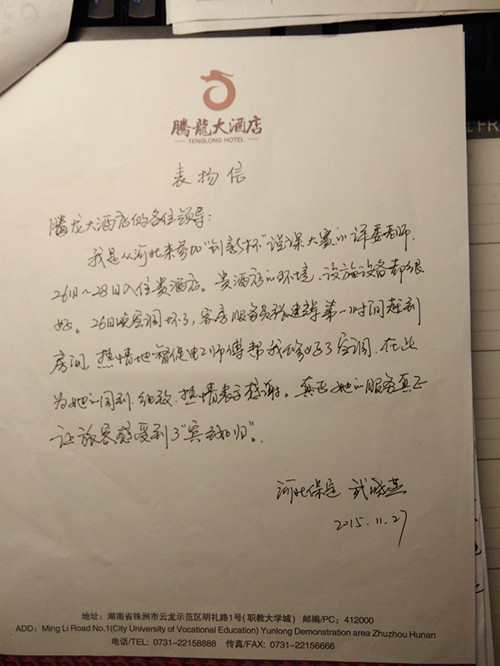 腾龍大酒店
TENGLONG HOTEL
表扬信
腾龙大酒店的各位领导:
我是从河北来参加"创新杯"说课大赛的评委老师.
26日~28日入住贵酒店。贵酒店的环境、设施设备都很
好。26日晚空调坏了,客房服务员张建萍第一时间赶到
房间,热情地督促电工师傅帮我修好了空调,在此
为她的周到、细致、热情表示感谢。真正她的服务真正
让旅客感受到了"宾至如归"。
河北保定 武晓燕
2015.11.27
地址:湖南省株洲市云龙示范区明礼路1号(职教大学城) 邮编/PC: 412000
ADD: Ming Li Road No.1(City University of Vocational Education) Yunlong Demonstration area Zhuzhou Hunan
电话/TEL: 0731-22158888 传真/FAX: 0731-22156666
FR